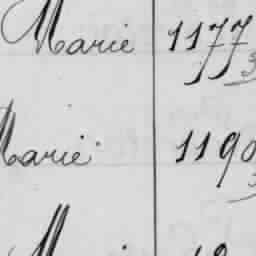 Marie 1177
Marie 1190